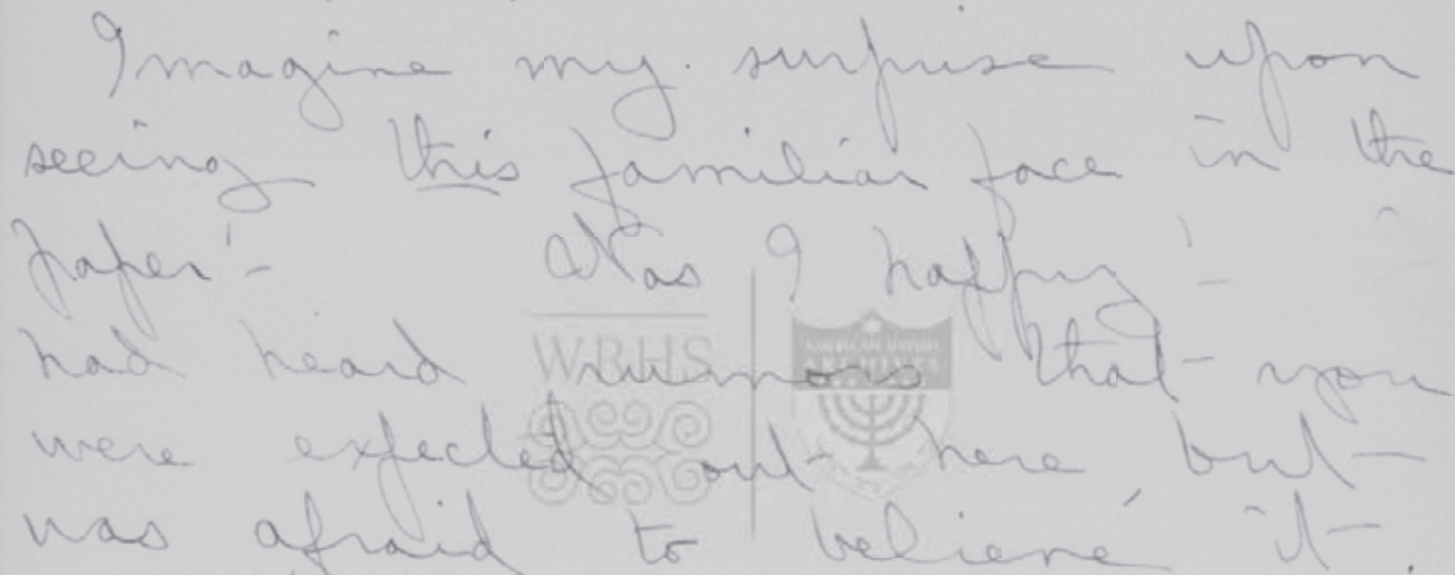 Imagine my surprise upon
seeing this familiar face in the
paper! -
Was I happy! -
had heard rumors that you
were expected out here but
was afraid to believe it.
WRHS
AMERICAN JEWISH
ARCHIVES